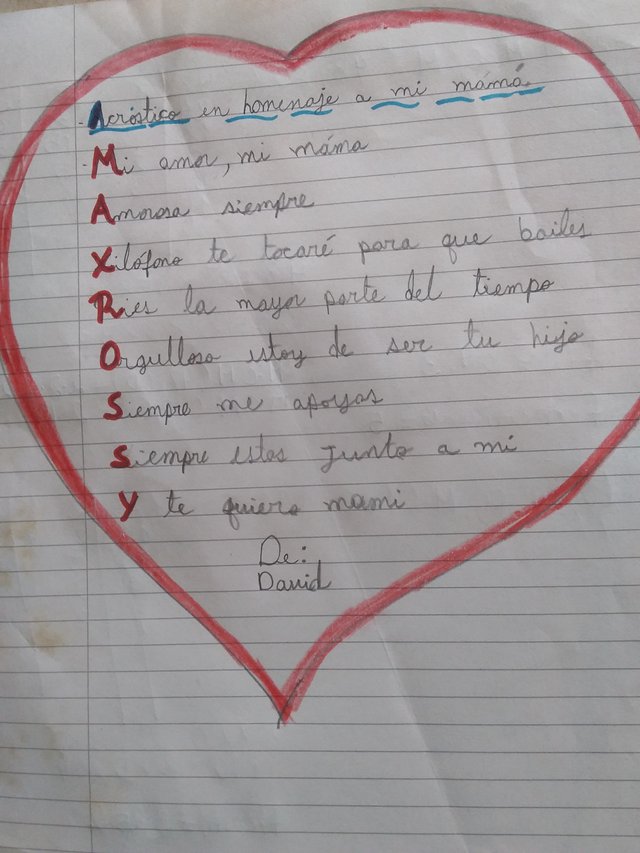 Acróstico en homenaje a mi mamá
Mi amor, mi máma
Amorosa siempre
Xilófono te tocaré para que bailes
Ries la mayor parte del tiempo
Orgulloso estoy de ser tu hijo
Siempre me apoyas
Siempre estas junto a mi
Y te quiero mami
De:
David